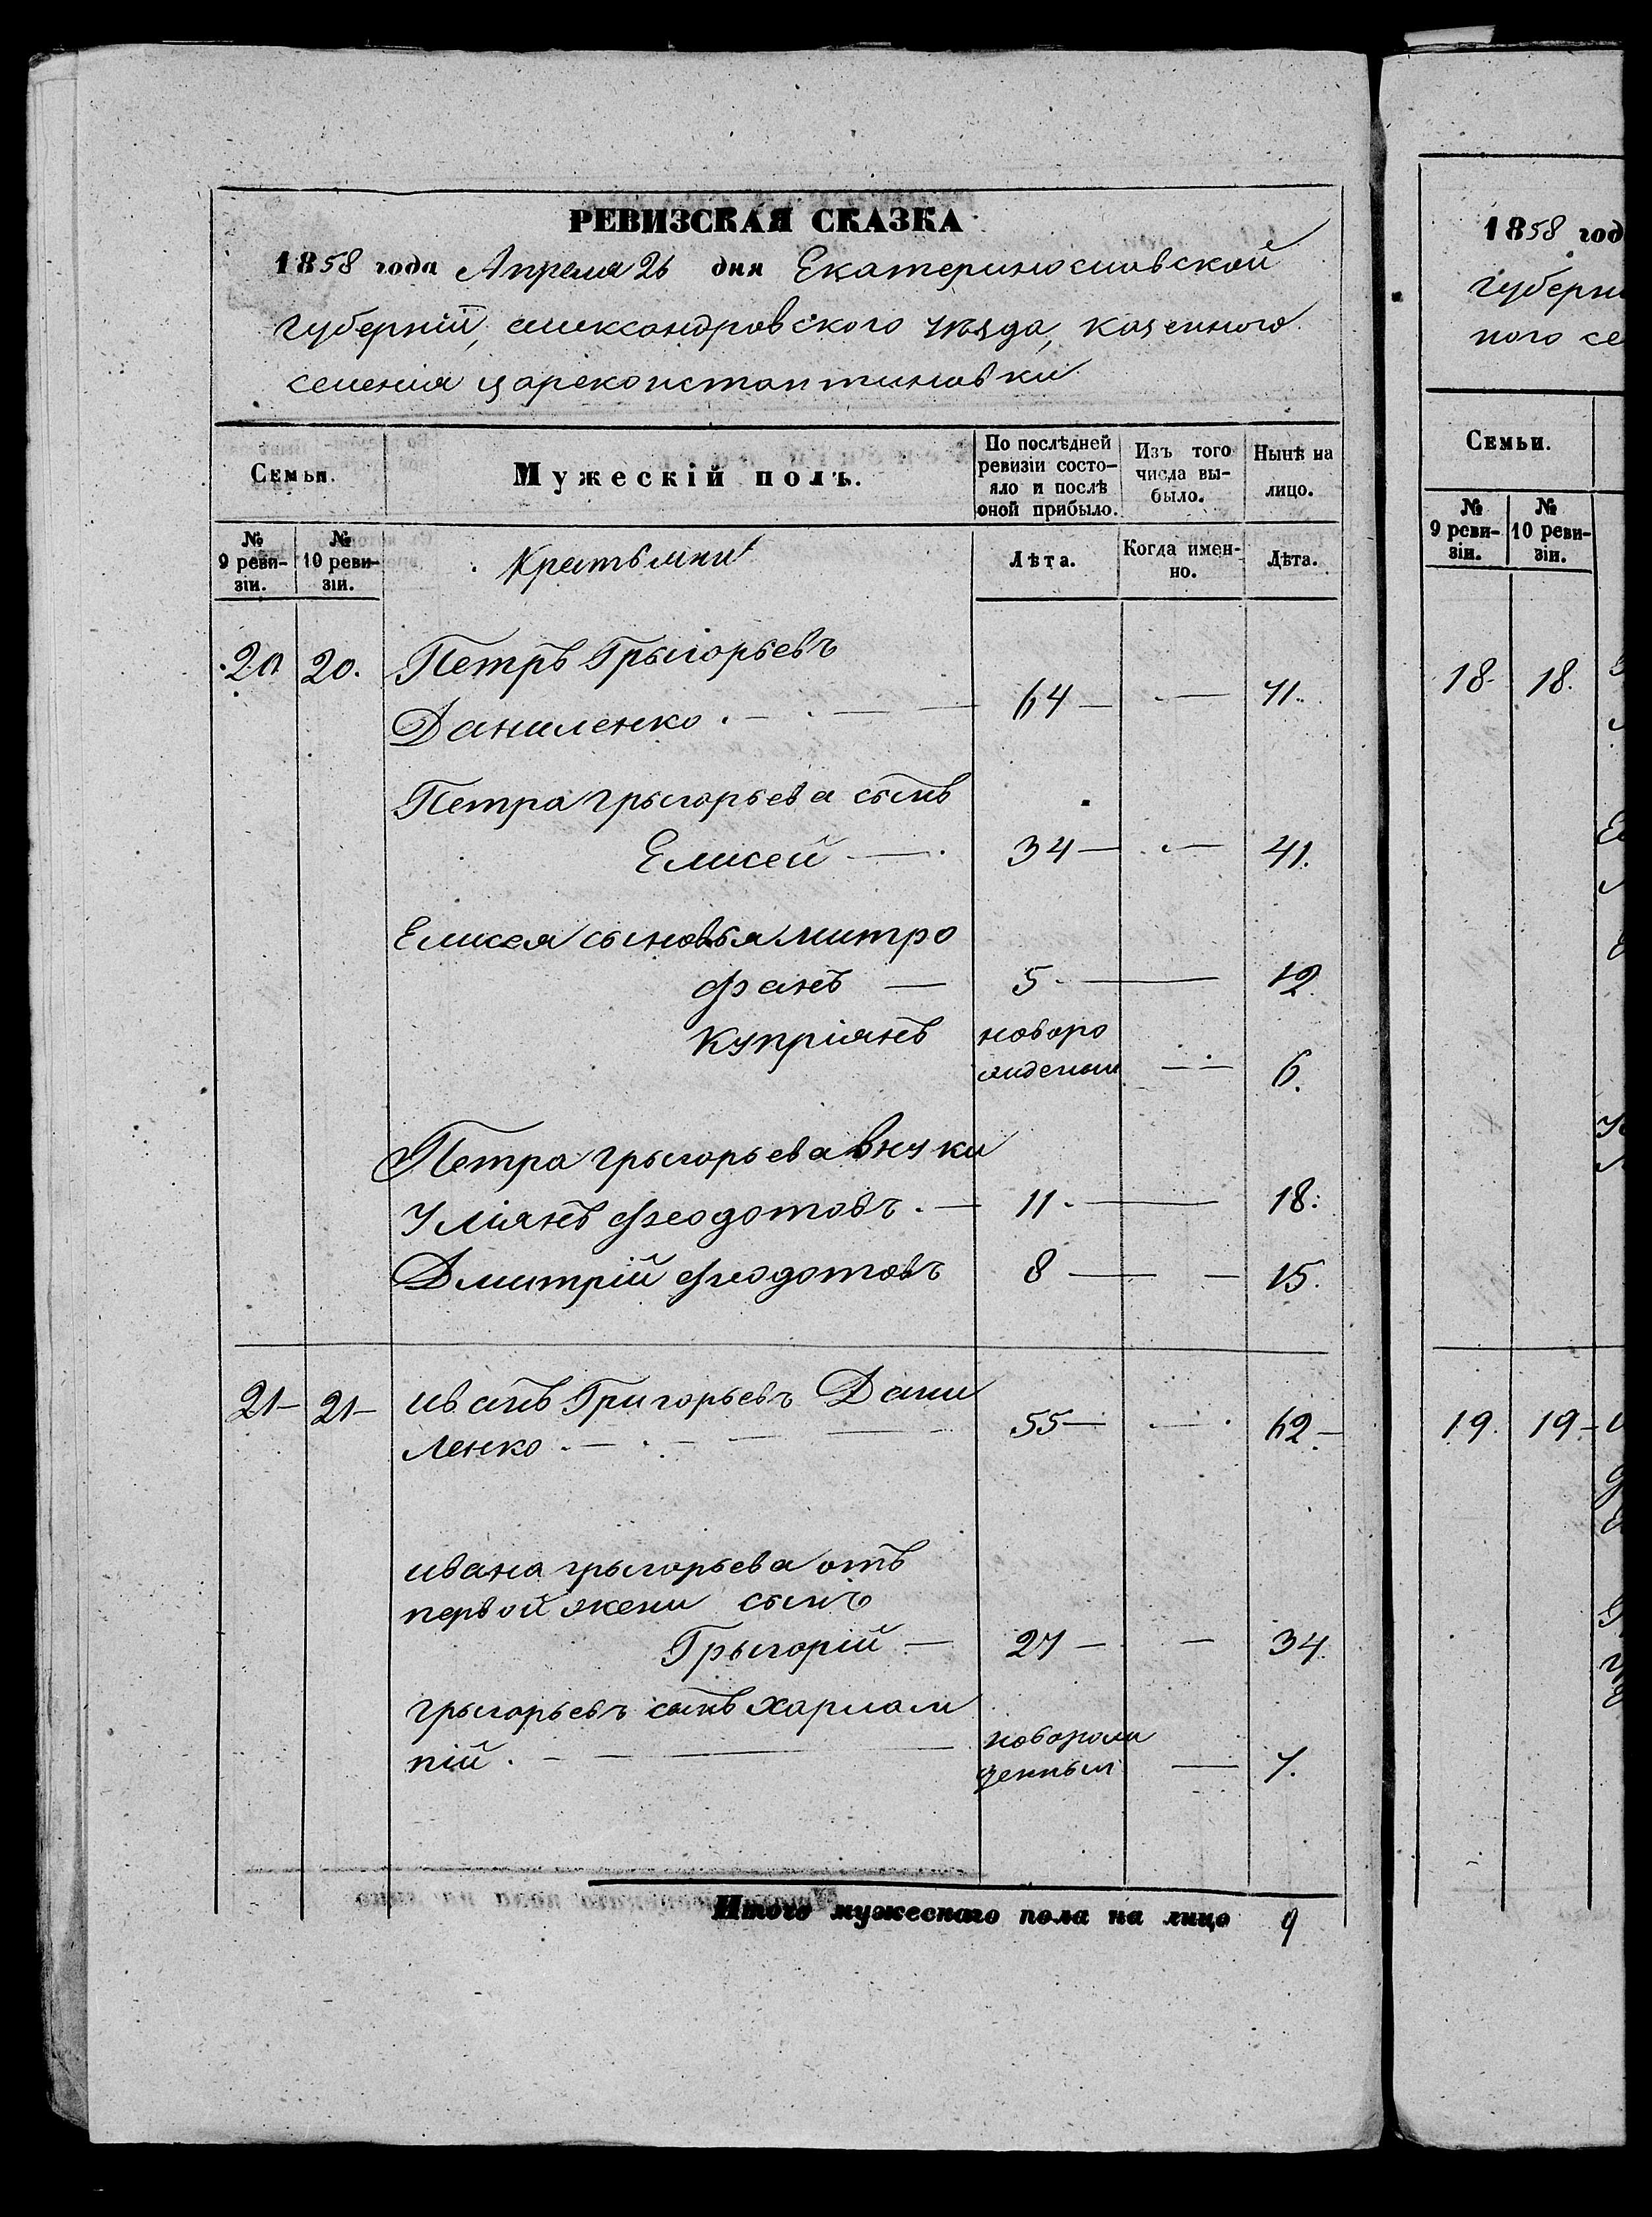 РЕВИЗСКАЯ СКАЗКА
1858 года Апреля 26 дня Екатеринославской
губерніи, александровского уезда, казенного
селенія цареконстантиновки
Семьи.
Мужескій полъ.
По послѣдней ревизіи состо-
яло и послѣ оной прибыло.
Изъ того числа вы-
было.
Нынѣ на лицо.
№ 9 реви-
зіи.
№ 10 реви-
зіи.
Лѣта.
Когда имен-
но.
Лѣта.
20 20. Петръ Грыгорьевъ
Даниленко 64 71.
Петра грыгорьева сынъ
Елисей 34 41.
Елисея сыновья митро
фанъ 5 12
Купріянъ новоро
жденый 6.
Петра грыгорьева внуки
Уліянъ феодотовъ 11 18.
Дмитрій феодотовъ 8 15.
21 21 иванъ Григорьевъ Дани
ленко 55 62
ивана грыгорьева отъ
первой жени сынъ
Грыгорій 27 34
грыгорьевъ сынъ харлам
пій новорож
денный 7.
Итого мужескаго пола на лицо 9
1858 год
губерн
ного се
Семьи.
№ 9 реви-
зіи.
№ 10 реви-
зіи.
18 18.
19. 19